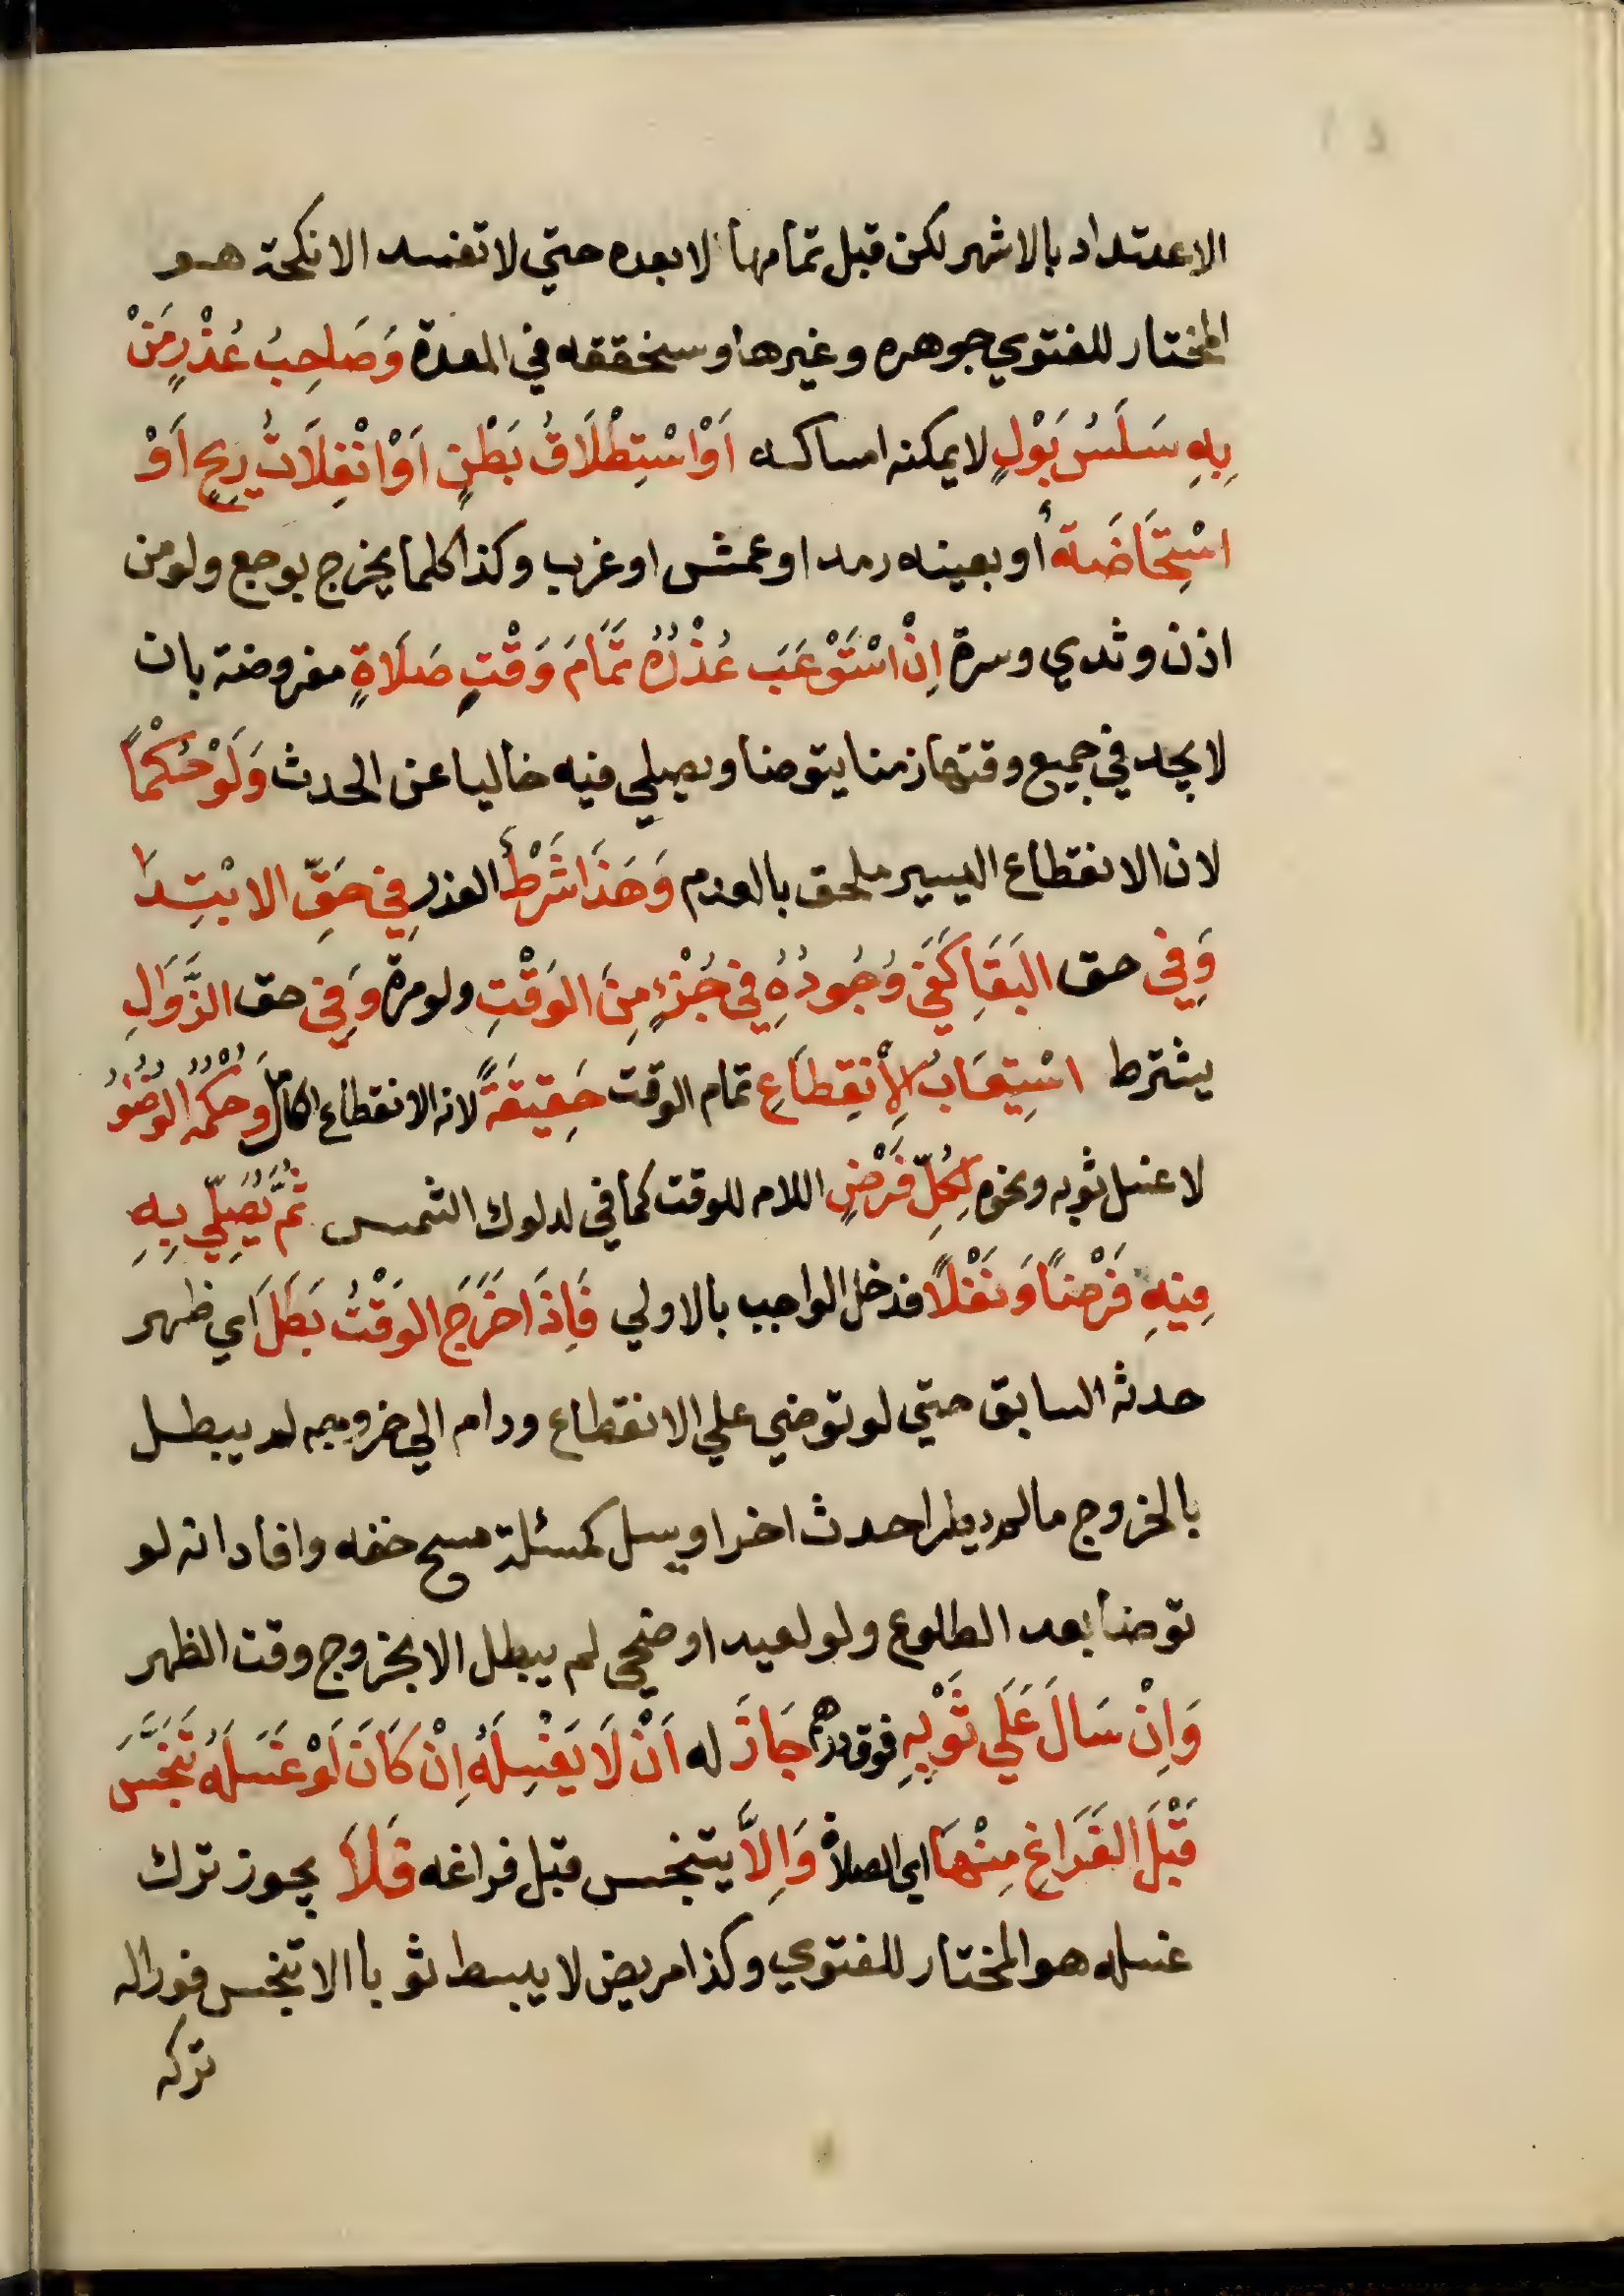 الاعتداد بالاشهر لكن قبل تمامها لا بعده حتي لا تفسد الانكحة هو
المختار للفتوي جوهره وغيرها وسنحققه في العدة وَصَاحِبُ عُذْرٍ مَنْ
بِهِ سَلَسُ بَوْلٍ لا يمكنه امساكه اَوْ اسْتِطْلَاقُ بَطْنٍ اَوْ انْفِلَاتُ رِيحٍ اَوْ
اسْتِحَاضَة أو بعينه رمد او عمش او غرب وكذا كلما يخرج بوجع ولو من
اذن وثدي وسرة اِنْ اسْتَوْعَبَ عُذْرُهُ تَمَامَ وَقْتِ صَلَاةٍ مفروضة بان
لا يجد في جميع وقتها زمنا يتوضا ويصلي فيه خاليا عن الحدث وَلَوْ حُكْمًا
لان الانقطاع اليسير ملحق بالعدم وَهَذَا شَرْطُ العذر فِي حَقِّ الابْتِدَا
وَفِي حق البَقَا كَفَى وُجُودُهُ فِي جُزْءٍ مِنَ الوَقْتِ ولو مرة وَفِي حق الزَّوَالِ
يشترط اسْتِيعَابُ الْاِنْقِطَاعِ تمام الوقت حَقِيقَةً لانه الانقطاع الكامل وَحُكْمُهُ الْوُضُوُ
لا غسل ثوبه ونحوه لِكُلِّ فَرْضٍ اللام للوقت كما في لدلوك الشمس ثُمَّ يُصَلِّي بِهِ
فِيهِ فَرْضًا وَنَفْلًا فدخل الواجب بالاولي فَاِذَا خَرَجَ الوَقْتُ بَطَلَ اي ظهر
حدثه السابق حتي لو توضي علي الانقطاع ودام الي خروجه لم يبطل
بالخروج ما لم يطرا حدث اخر او يسل كمسئلة مسح خفه وافاد انه لو
توضا بعد الطلوع ولو لعيد او ضحي لم يبطل الا بخروج وقت الظهر
وَاِنْ سَالَ عَلَي ثَوْبِهِ فوق درهم جَازَ له اَنْ لَا يَغْسِلَهُ اِنْ كَانَ لَوْ غَسَلَهُ تَنَجَّسَ
قَبْلَ الفَرَاغِ مِنْهَا اي الصلاة وَاِلَّا يتنجس قبل فراغه فَلَا يجوز ترك
غسله هو المختار للفتوي وكذا مريض لا يبسط ثوبا الا تنجس فورا له
تركه